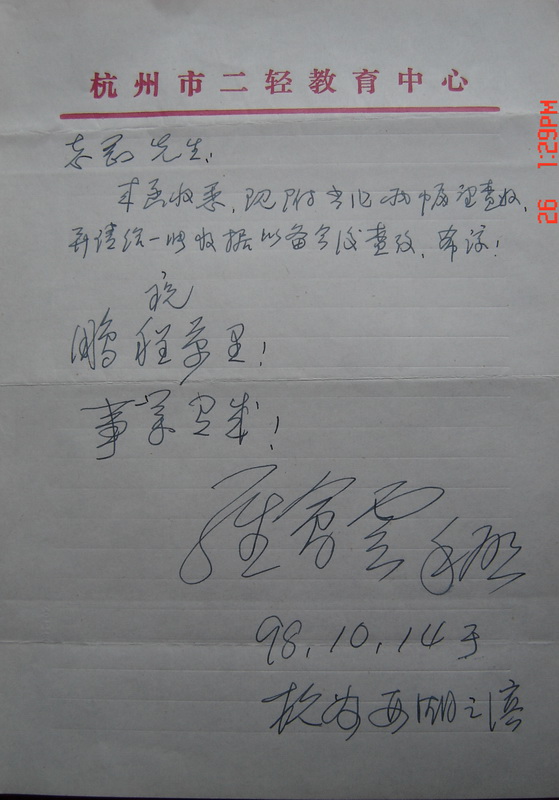 杭州市二轻教育中心
志刚先生：
来函收悉，现附书旧我
并请给一收据以备今后查考，希谅！
祝
鹏程万里！
事业有成！
手启
98.10.14于
杭州西湖之滨
26 1:29PM